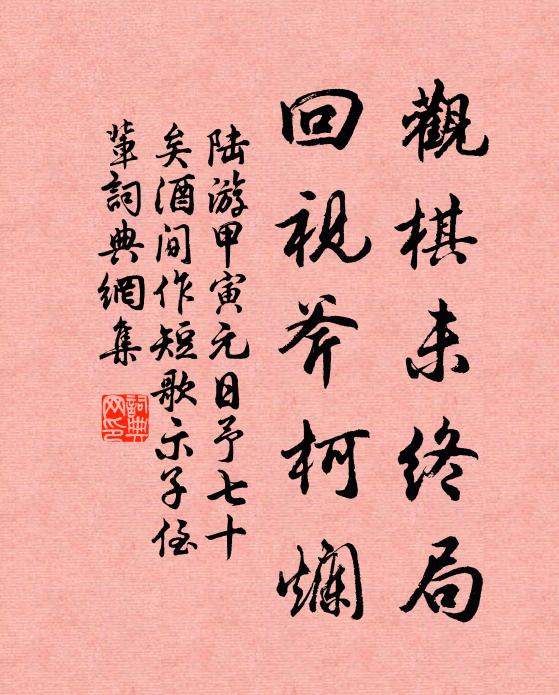 觀棋未終局
回視斧柯爛
陆游甲寅元日予七十
矣酒间作短歌示子侄
輩詞典網集
詞典
网印